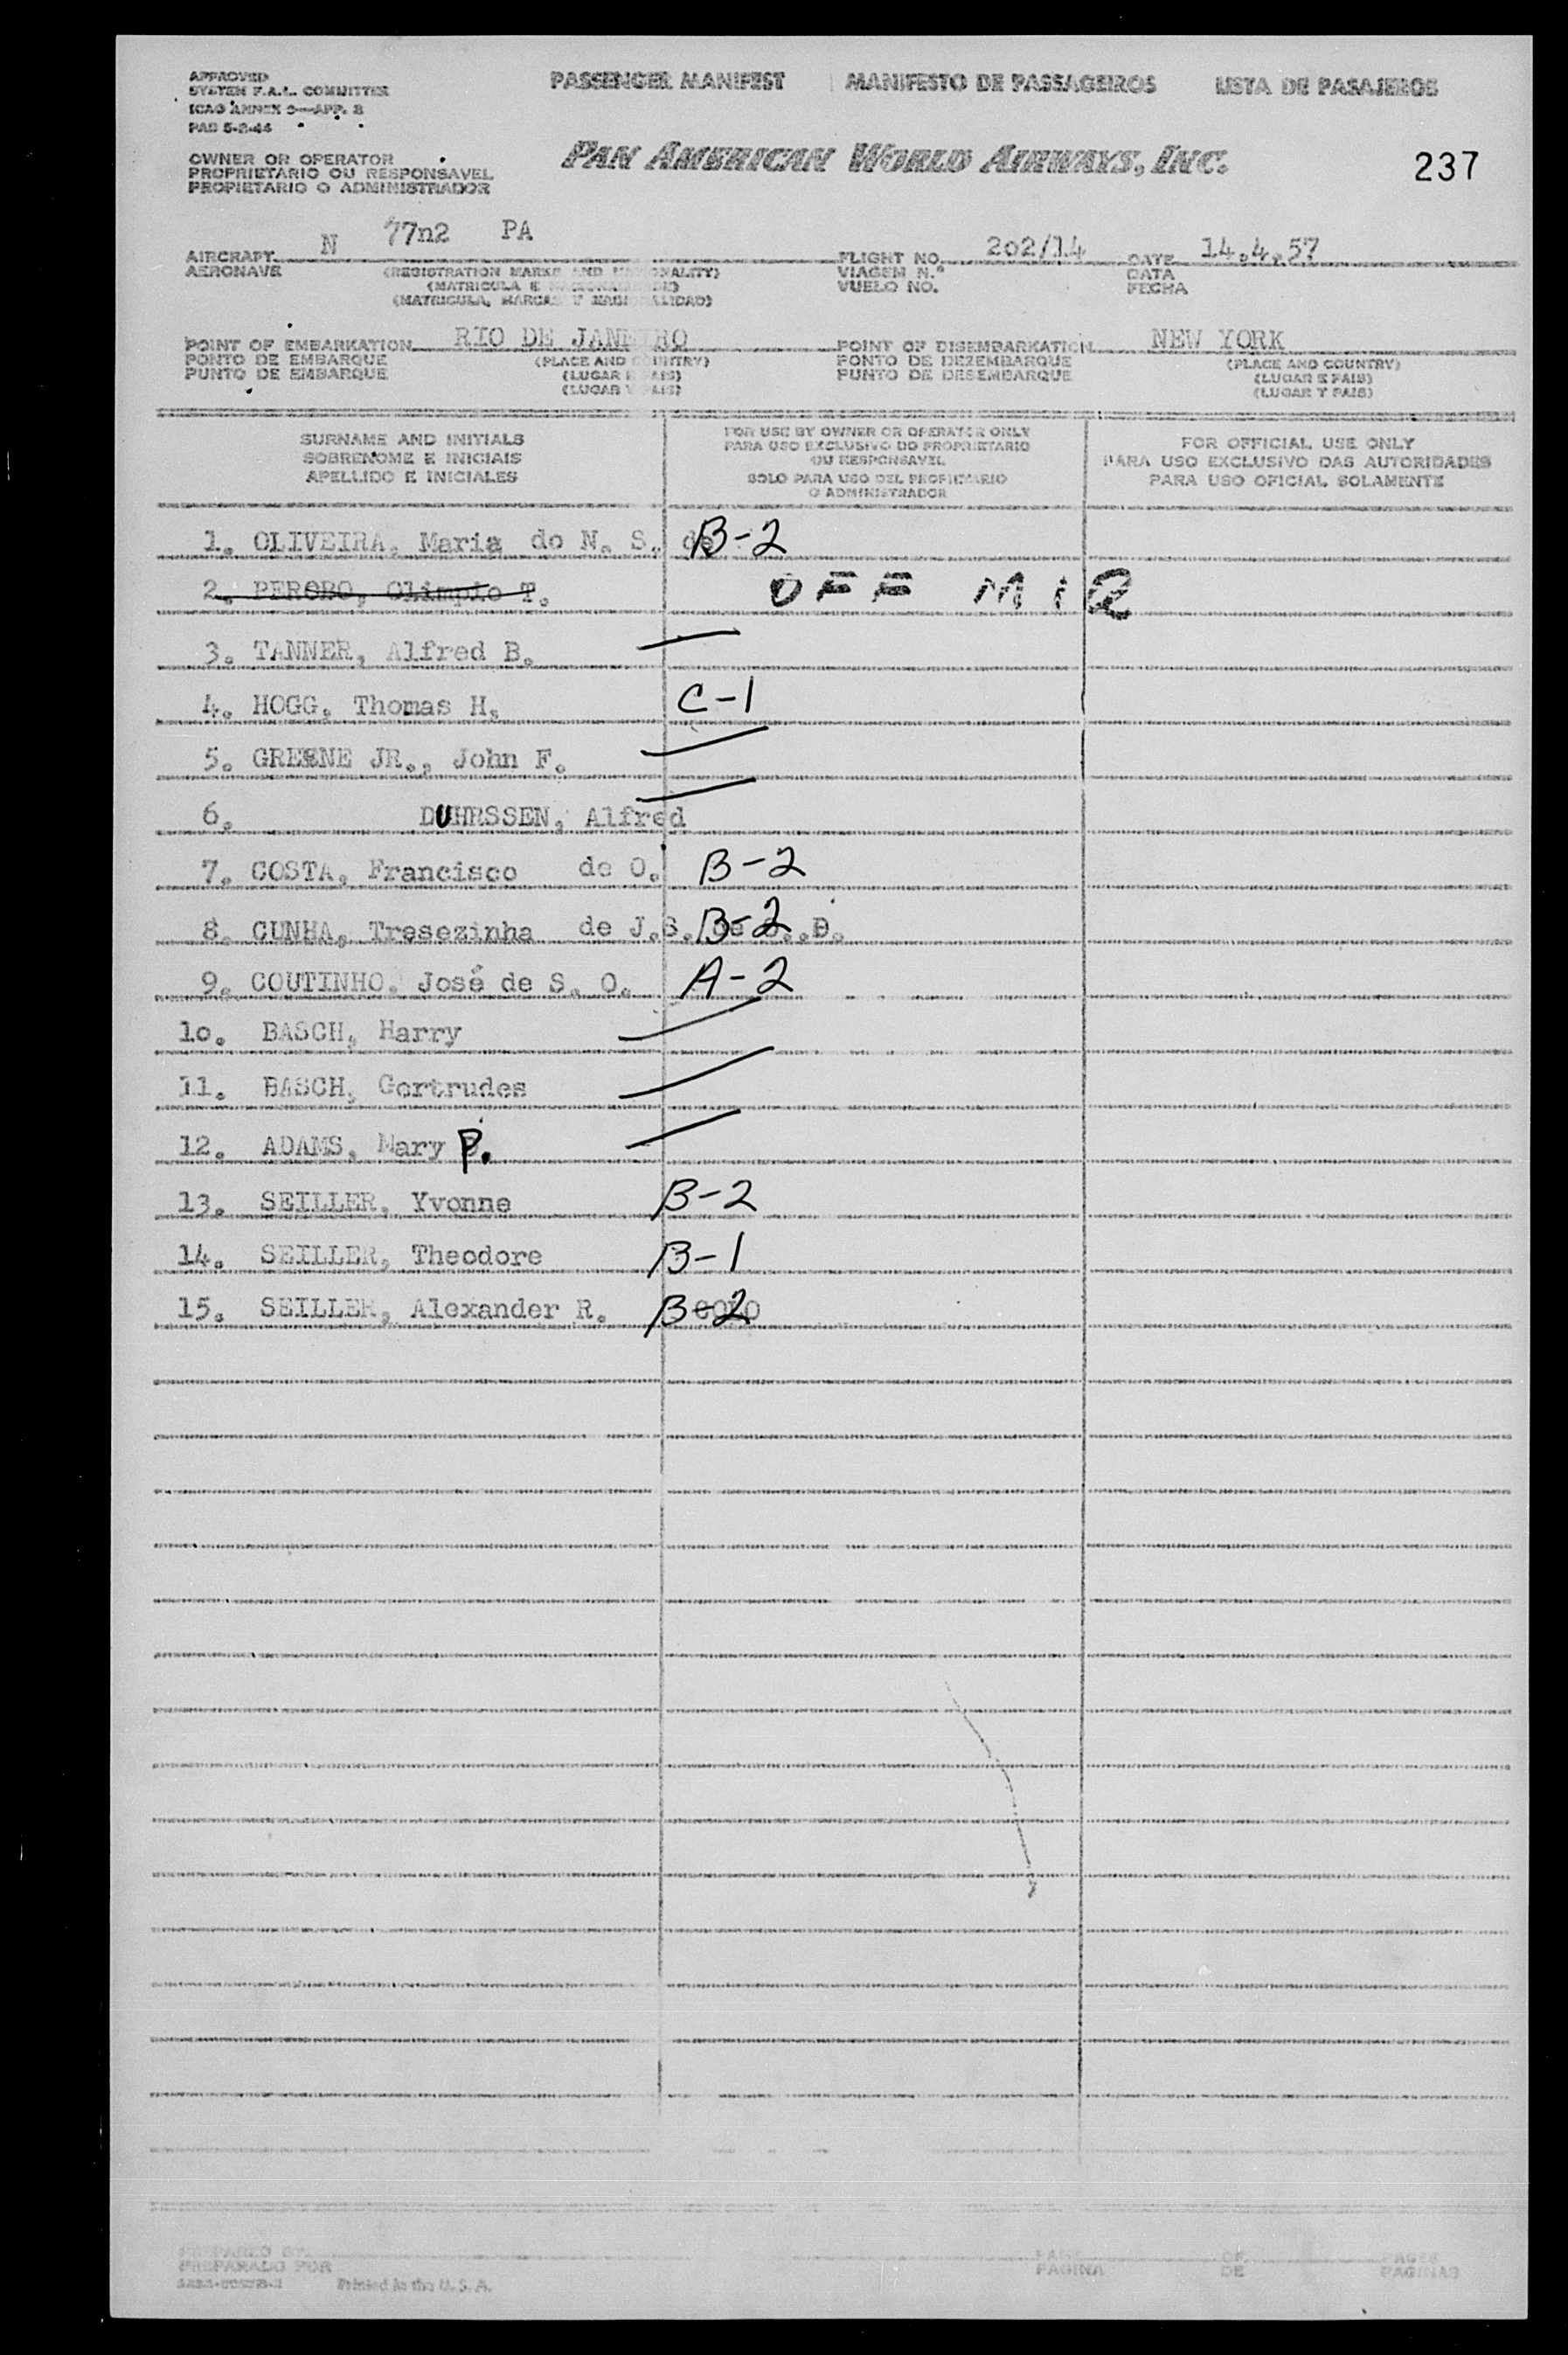 APPROVED
SYSTEM F.A.L. COMMITTEE
ICAO ANNEX 9—APP. 2
PASSENGER MANIFEST MANIFESTO DE PASSAGEIROS LISTA DE PASAJEROS
PAN AMERICAN WORLD AIRWAYS, INC.
237
OWNER OR OPERATOR
PROPRIETARIO OU RESPONSAVEL
PROPIETARIO O ADMINISTRADOR
AIRCRAFT N 77n2 PA FLIGHT NO. 202/14 DATE 14.4.57
AERONAVE (REGISTRATION MARKS AND NATIONALITY) VIAGEM N.º DATA
(MATRICULA E VUELO NO. FECHA
(MATRICULA, MARCAS Y NACIONALIDAD)
POINT OF EMBARKATION RIO DE JANEIRO POINT OF DISEMBARKATION NEW YORK
PONTO DE EMBARQUE (PLACE AND COUNTRY) PONTO DE DEZEMBARQUE (PLACE AND COUNTRY)
PUNTO DE EMBARQUE (LUGAR E PAIS) PUNTO DE DESEMBARQUE (LUGAR E PAIS)
(LUGAR Y PAIS) (LUGAR Y PAIS)
SURNAME AND INITIALS
SOBRENOME E INICIAIS
APELLIDO E INICIALES
FOR USE BY OWNER OR OPERATOR ONLY
PARA USO EXCLUSIVO DO PROPRIETARIO
OU RESPONSAVEL
SOLO PARA USO DEL PROPIETARIO
O ADMINISTRADOR
FOR OFFICIAL USE ONLY
PARA USO EXCLUSIVO DAS AUTORIDADES
PARA USO OFICIAL SOLAMENTE
1. OLIVEIRA, Maria do N. S. de B-2
2. PEROBO, Olimpio T. OFF MIA
3. TANNER, Alfred B.
4. HOGG, Thomas H. C-1
5. GREENE JR., John F.
6. DUHRSSEN, Alfred
7. COSTA, Francisco de O. B-2
8. CUNHA, Tresezinha de J.S. B-2 D.
9. COUTINHO, José de S. O. A-2
10. BASCH, Harry
11. BASCH, Gertrudes
12. ADAMS, Mary P.
13. SEILLER, Yvonne B-2
14. SEILLER, Theodore B-1
15. SEILLER, Alexander R. B-2
PREPARED BY PAGE OF PAGES
PREPARADO POR PAGINA DE PAGINAS
Printed in the U. S. A.